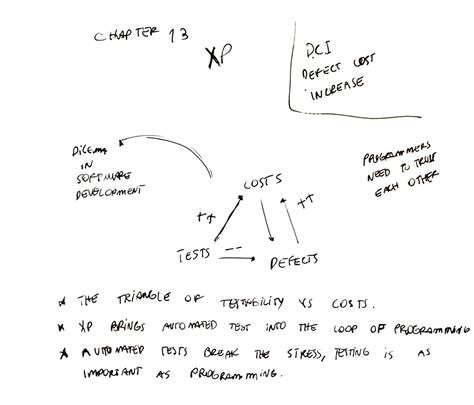 CHAPTER 13
XP
DCI
DEFECT COST
INCREASE
DILEMA
IN
SOFTWARE
DEVELOPMENT
PROGRAMMERS
NEED TO TRUST
EACH OTHER
COSTS
++
++
TESTS
--
DEFECTS
THE TRIANGLE OF TESTEBILITY VS COSTS.
XP BRINGS AUTOMATED TEST INTO THE LOOP OF PROGRAMMING
AUTOMATED TESTS BREAK THE STRESS, TESTING IS AS
IMPORTANT AS PROGRAMMING.